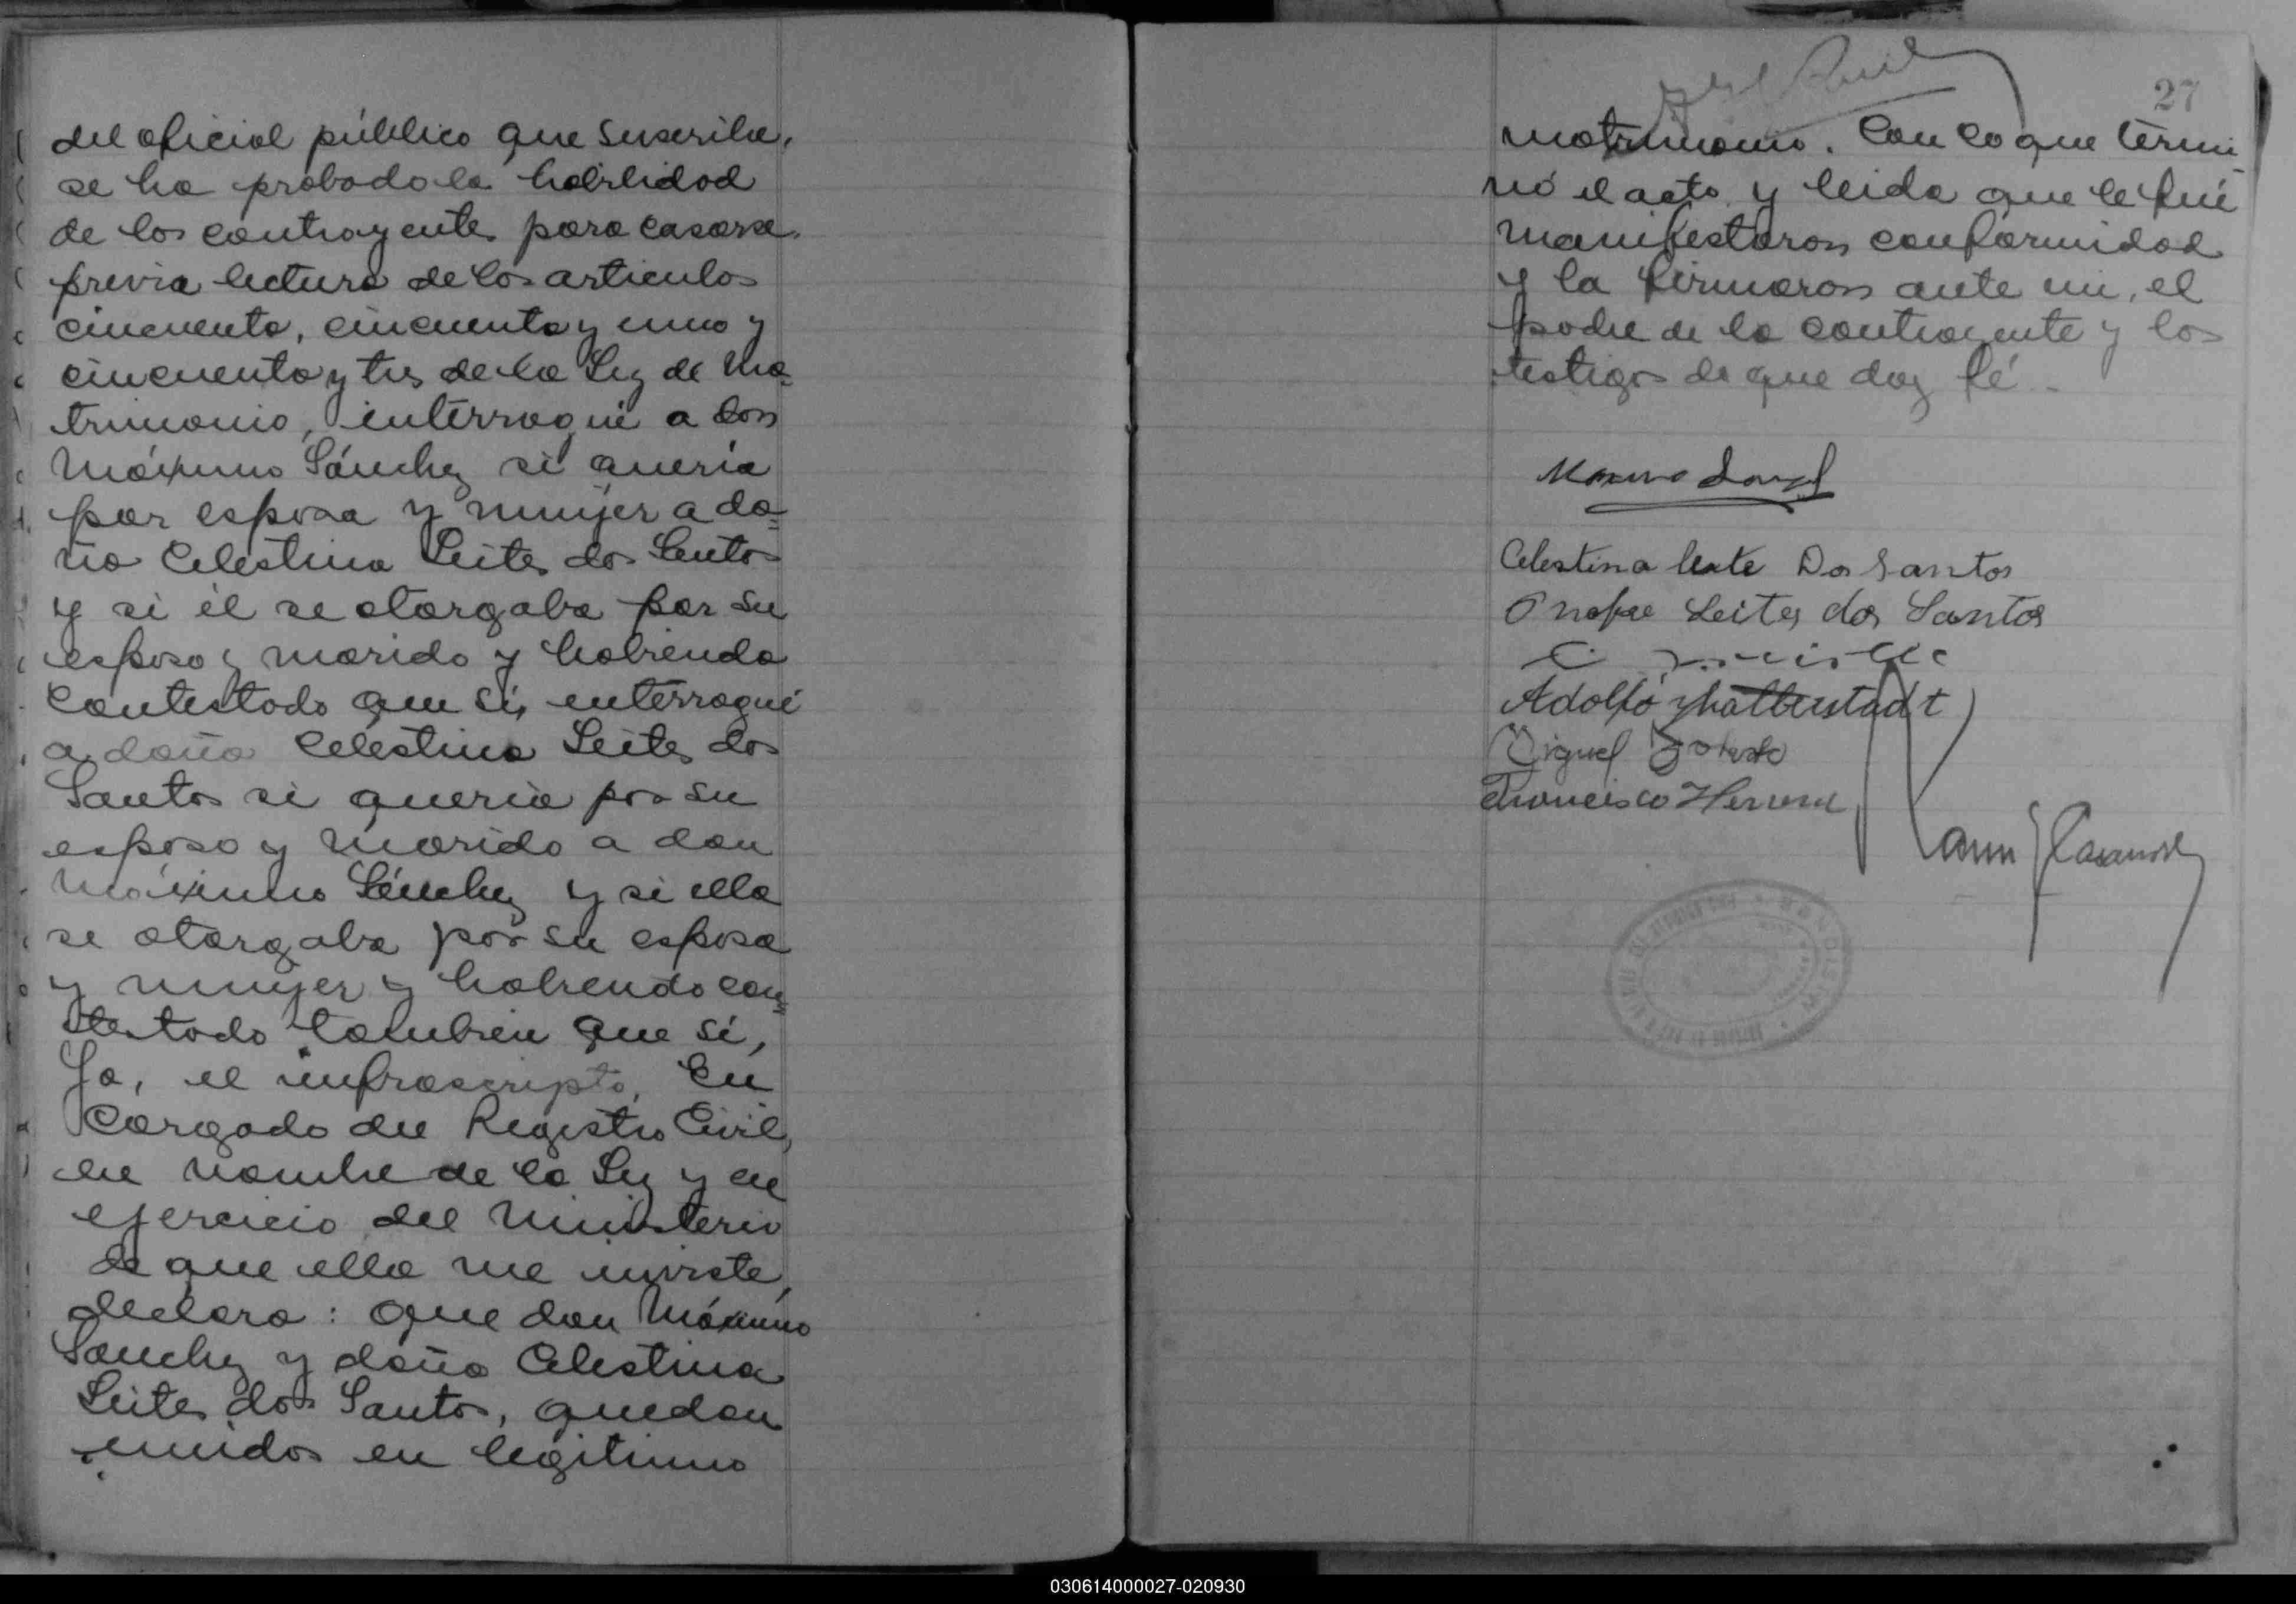 del oficial público que suscribe,
se ha probado la habilidad
de los contrayentes para casarse,
previa lectura de los articulos
cincuenta, cincuenta y uno y
cincuenta y tres de la Ley de Ma-
trimonio, interrogué a don
Máximo Sánchez si quería
por esposa y mujer a do-
ña Celestina Leites dos Santos
y si él se otorgaba por su
esposo y marido y habiendo
contestado que sí, interrogué
a doña Celestina Leites dos
Santos si queria por su
esposo y marido a don
Máximo Sánchez y si ella
se otorgaba por su esposa
y mujer y habiendo con-
testado tambien que sí,
Yo, el infrascripto, En
cargado del Registro Civil,
en nombre de la Ley y en
ejercicio del Ministerio
de que ella me inviste,
declaro: que don Máximo
Sanchez y doña Celestina
Leites dos Santos, quedan
unidos en legitimo
27
matrimonio. Con lo que termi-
nó el acto y leida que le fué
manifestaron conformidad
y la firmaron ante mi, el
padre de la contrayente y los
testigos de que doy fé.
Maximo Sanchez
Celestina leite Dos Santos
Onofre Leites dos Santos
Adolfo
Miguel
Francisco Herrera
030614000027-020930